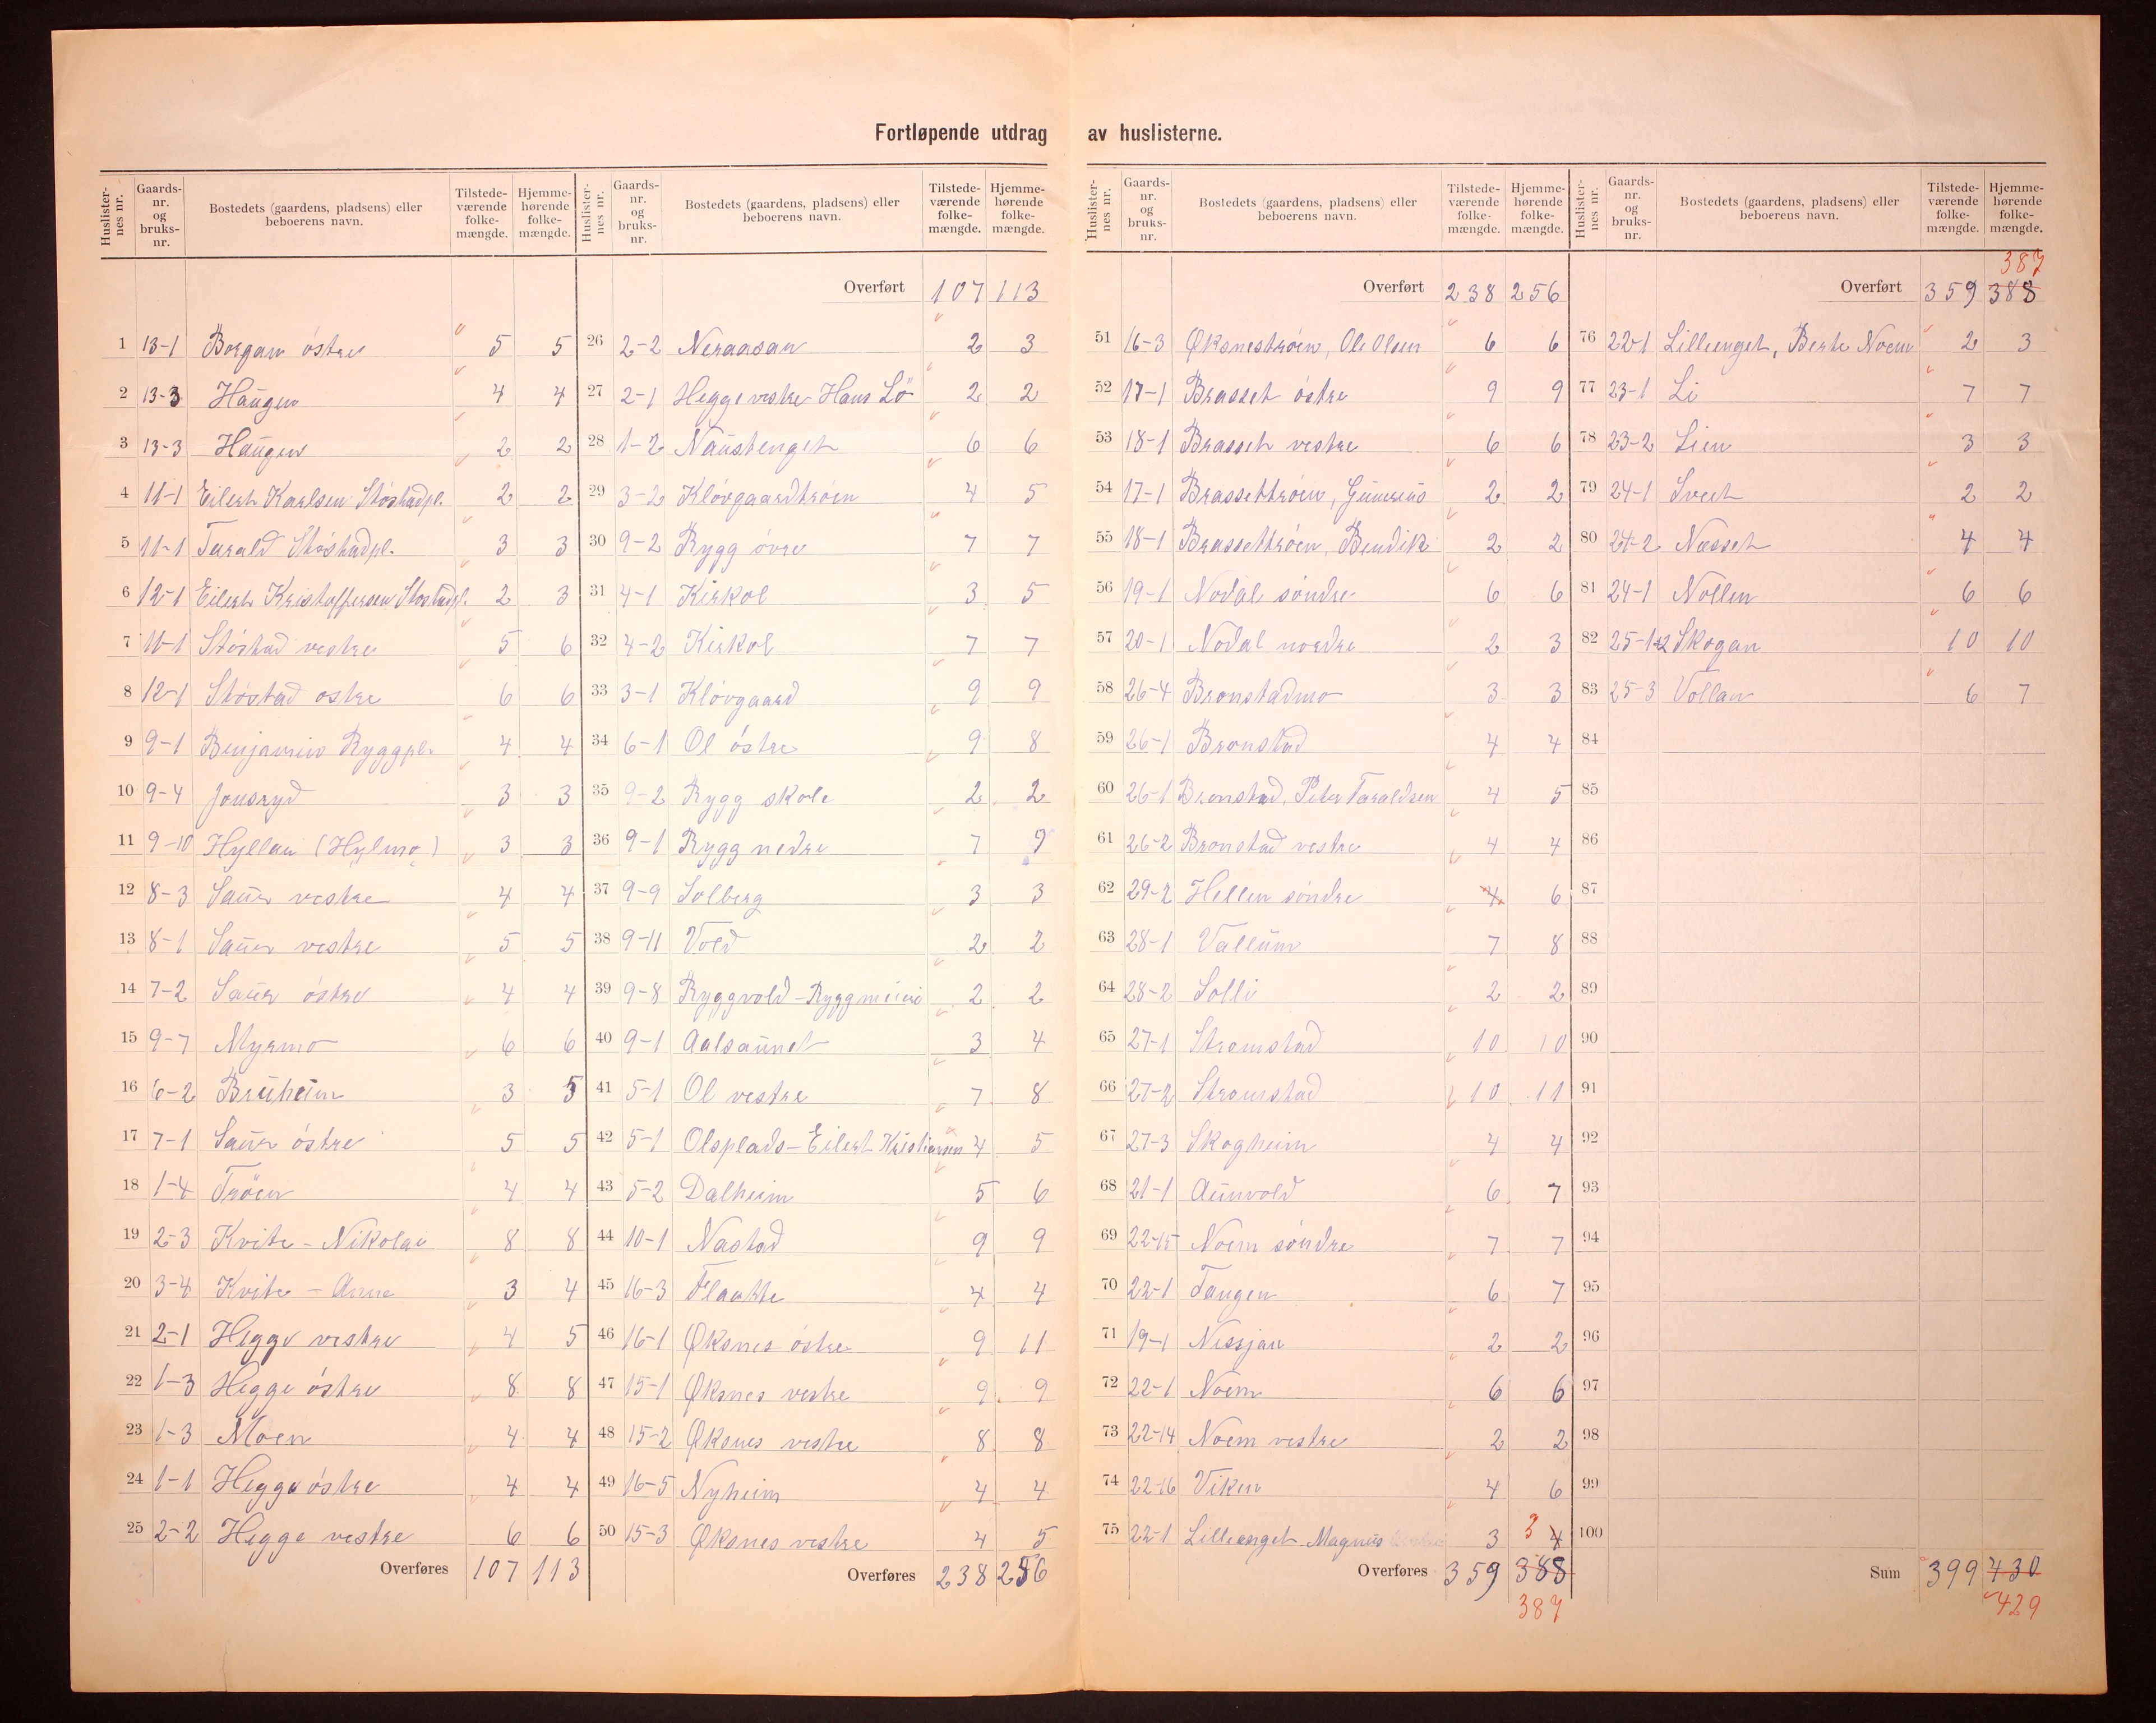 Fortløpende utdrag av huslisterne.
Huslisternes nr. Gaards-nr. og bruks-nr. Bostedets (gaardens, pladsens) eller beboerens navn. Tilstedeværende folkemængde. Hjemmehørende folkemængde.
1 13-1 Borgan östre 5 5
2 13-3 Haugen 4 4
3 13-3 Haugen 2 2
4 11-1 Eilert Karlsen Stöstadpl. 2 2
5 11-1 Tarald Stöstadpl. 3 3
6 12-1 Eilert Kristoffersen Stöstadpl. 2 3
7 11-1 Stöstad vestre 5 6
8 12-1 Stöstad östre 6 6
9 9-1 Benjamin Ryggpl. 4 4
10 9-4 Jonsryd 3 3
11 9-10 Hyllan (Hylmo) 3 3
12 8-3 Saur vestre 4 4
13 8-1 Saur vestre 5 5
14 7-2 Saur östre 4 4
15 9-7 Myrmo 6 6
16 6-2 Bruheim 3 5
17 7-1 Saur östre 5 5
18 1-4 Tröen 4 4
19 2-3 Kvite - Nikolai 8 8
20 3-4 Kvite - Anna 3 4
21 2-1 Hegge vestre 4 5
22 1-3 Hegge östre 8 8
23 1-3 Moen 4 4
24 1-1 Hegge östre 4 4
25 2-2 Hegge vestre 6 6
Overføres 107 113
Huslisternes nr. Gaards-nr. og bruks-nr. Bostedets (gaardens, pladsens) eller beboerens navn. Tilstedeværende folkemængde. Hjemmehørende folkemængde.
Overført 107 113
26 2-2 Neraasan 2 3
27 2-1 Hegge vestre Hans Lö 2 2
28 1-2 Naustenget 6 6
29 3-2 Klövgaardtröen 4 5
30 9-2 Rygg övre 7 7
31 4-1 Kirkol 3 5
32 4-2 Kirkol 7 7
33 3-1 Klövgaard 9 9
34 6-1 Ol östre 9 8
35 9-2 Rygg skole 2 2
36 9-1 Rygg nedre 7 9
37 9-9 Solberg 3 3
38 9-11 Vold 2 2
39 9-8 Ryggvold - Ryggmeieri 2 2
40 9-1 Aalsaunet 3 4
41 5-1 Ol vestre 7 8
42 5-1 Olsplads - Eilert Kristiansen 4 5
43 5-2 Dalheim 5 6
44 10-1 Nastad 9 9
45 16-3 Flaatte 4 4
46 16-1 Øksnes östre 9 11
47 15-1 Øksnes vestre 9 9
48 15-2 Øksnes vestre 8 8
49 16-5 Nyheim 4 4
50 15-3 Øksnes vestre 4 5
Overføres 238 256
Huslisternes nr. Gaards-nr. og bruks-nr. Bostedets (gaardens, pladsens) eller beboerens navn. Tilstedeværende folkemængde. Hjemmehørende folkemængde.
Overført 238 256
51 16-3 Øksneströen, Ole Olsen 6 6
52 17-1 Brasset östre 9 9
53 18-1 Brasset vestre 6 6
54 17-1 Brassettröen, Gunerius 2 2
55 18-1 Brassettröen, Bendik 2 2
56 19-1 Nodal söndre 6 6
57 20-1 Nodal nordre 2 3
58 26-4 Bronstadmo 3 3
59 26-1 Bronstad 4 4
60 26-1 Bronstad, Peter Taraldsen 4 5
61 26-2 Bronstad vestre 4 4
62 29-2 Hellem söndre 4 6
63 28-1 Vallum 7 8
64 28-2 Solli 2 2
65 27-1 Stromstad 10 10
66 27-2 Stromstad 10 11
67 27-3 Skogheim 4 4
68 21-1 Aunvold 6 7
69 22-15 Noem söndre 7 7
70 22-1 Tangen 6 7
71 19-1 Nessjan 2 2
72 22-1 Noem 6 6
73 22-14 Noem vestre 2 2
74 22-16 Viken 4 6
75 22-1 Lilleenget Magnus 3 3 4
Overføres 359 388
387
Huslisternes nr. Gaards-nr. og bruks-nr. Bostedets (gaardens, pladsens) eller beboerens navn. Tilstedeværende folkemængde. Hjemmehørende folkemængde.
387
Overført 359 388
76 22-1 Lilleenget, Berte Noem 2 3
77 23-1 Li 7 7
78 23-2 Lien 3 3
79 24-1 Sveet 2 2
80 24-2 Nesset 4 4
81 24-1 Nollen 6 6
82 25-1+2 Skogan 10 10
83 25-3 Vollan 6 7
84
85
86
87
88
89
90
91
92
93
94
95
96
97
98
99
100
Sum 399 430
429